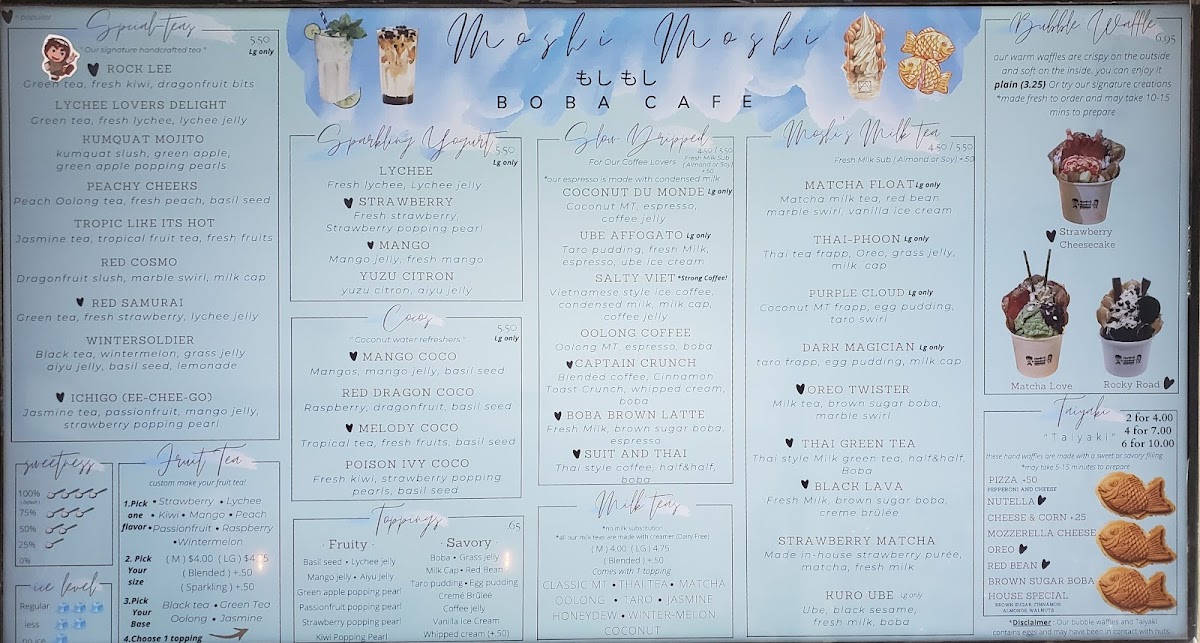 ♥ = popular
Special-teas
"Our signature handcrafted tea"
5.50
Lg only
♥ ROCK LEE
Green tea, fresh kiwi, dragonfruit bits
LYCHEE LOVERS DELIGHT
Green tea, fresh lychee, lychee jelly
KUMQUAT MOJITO
kumquat slush, green apple,
green apple popping pearls
PEACHY CHEEKS
Peach Oolong tea, fresh peach, basil seed
TROPIC LIKE ITS HOT
Jasmine tea, tropical fruit tea, fresh fruits
RED COSMO
Dragonfruit slush, marble swirl, milk cap
♥ RED SAMURAI
Green tea, fresh strawberry, lychee jelly
WINTERSOLDIER
Black tea, wintermelon, grass jelly
aiyu jelly, basil seed, lemonade
♥ ICHIGO (EE-CHEE-GO)
Jasmine tea, passionfruit, mango jelly,
strawberry popping pearl
sweetness
100%
75%
50%
25%
0%
ice level
Regular
less
no ice
Fruit Tea
custom make your fruit tea!
1.Pick one flavor
• Strawberry • Lychee
• Kiwi • Mango • Peach
• Passionfruit • Raspberry
• Wintermelon
2. Pick Your size
( M ) $4.00 ( LG ) $4.75
( Blended ) +.50
( Sparkling ) +.50
3.Pick Your Base
Black tea • Green Tea
Oolong • Jasmine
4.Choose 1 topping
Moshi Moshi
もしもし
BOBA CAFE
Sparkling Yogurt
5.50
Lg only
LYCHEE
Fresh lychee, Lychee jelly
♥ STRAWBERRY
Fresh strawberry,
Strawberry popping pearl
♥ MANGO
Mango jelly, fresh mango
YUZU CITRON
yuzu citron, aiyu jelly
Cocos
5.50
"Coconut water refreshers"
Lg only
♥ MANGO COCO
Mangos, mango jelly, basil seed
RED DRAGON COCO
Raspberry, dragonfruit, basil seed
♥ MELODY COCO
Tropical tea, fresh fruits, basil seed
POISON IVY COCO
Fresh kiwi, strawberry popping
pearls, basil seed
Toppings
.65
· Fruity ·
Basil seed • Lychee jelly
Mango jelly • Aiyu Jelly
Green apple popping pearl
Passionfruit popping pearl
Strawberry popping pearl
Kiwi Popping Pearl
· Savory ·
Boba • Grass jelly
Milk Cap • Red Bean
Taro pudding • Egg pudding
Cremé Brûleé
Coffee jelly
Vanilla Ice Cream
Whipped cream (+.50)
Slow Dripped
4.50 / 5.50
For Our Coffee Lovers
Fresh Milk Sub
(Almond or Soy)
+.50
*our espresso is made with condensed milk
COCONUT DU MONDE Lg only
Coconut MT, espresso,
coffee jelly
UBE AFFOGATO Lg only
Taro pudding, fresh Milk,
espresso, ube ice cream
SALTY VIET *Strong Coffee!
Vietnamese style ice coffee,
condensed milk, milk cap,
coffee jelly
OOLONG COFFEE
Oolong MT, espresso, boba
♥ CAPTAIN CRUNCH
Blended coffee, Cinnamon
Toast Crunch, whipped cream,
boba
♥ BOBA BROWN LATTE
Fresh Milk, brown sugar boba,
espresso
♥ SUIT AND THAI
Thai style coffee, half&half,
boba
Milk teas
*no milk substitution
*all our milk teas are made with creamer (Dairy Free)
( M ) 4.00 ( LG ) 4.75
( Blended ) +.50
Comes with 1 topping
CLASSIC MT • THAI TEA • MATCHA
OOLONG • TARO • JASMINE
HONEYDEW • WINTER-MELON
COCONUT
Moshi's Milk tea
4.50 / 5.50
Fresh Milk Sub (Almond or Soy) +.50
MATCHA FLOAT Lg only
Matcha milk tea, red bean
marble swirl, vanilla ice cream
THAI-PHOON Lg only
Thai tea frapp, Oreo, grass jelly,
milk cap
PURPLE CLOUD Lg only
Coconut MT frapp, egg pudding,
taro swirl
DARK MAGICIAN Lg only
taro frapp, egg pudding, milk cap
♥ OREO TWISTER
Milk tea, brown sugar boba,
marble swirl
♥ THAI GREEN TEA
Thai style Milk green tea, half&half,
Boba
♥ BLACK LAVA
Fresh Milk, brown sugar boba,
creme brûlée
STRAWBERRY MATCHA
Made in-house strawberry purée,
matcha, fresh milk
KURO UBE Lg only
Ube, black sesame,
fresh milk, boba
Bubble Waffle
6.95
our warm waffles are crispy on the outside
and soft on the inside. you can enjoy it
plain (3.25) Or try our signature creations
*made fresh to order and may take 10-15
mins to prepare
♥ Strawberry
Cheesecake
Matcha Love
Rocky Road ♥
Taiyaki
"Taiyaki"
2 for 4.00
4 for 7.00
6 for 10.00
these hand waffles are made with a sweet or savory filling
*may take 5-15 minutes to prepare
PIZZA +.50
PEPPERONI AND CHEESE
NUTELLA ♥
CHEESE & CORN +.25
MOZZERELLA CHEESE
OREO ♥
RED BEAN ♥
BROWN SUGAR BOBA
HOUSE SPECIAL
BROWN SUGAR, CINNAMON,
ALMONDS, WALNUTS
*Disclaimer : Our bubble waffles and Taiyaki
contains eggs and may have been in contact with nuts.